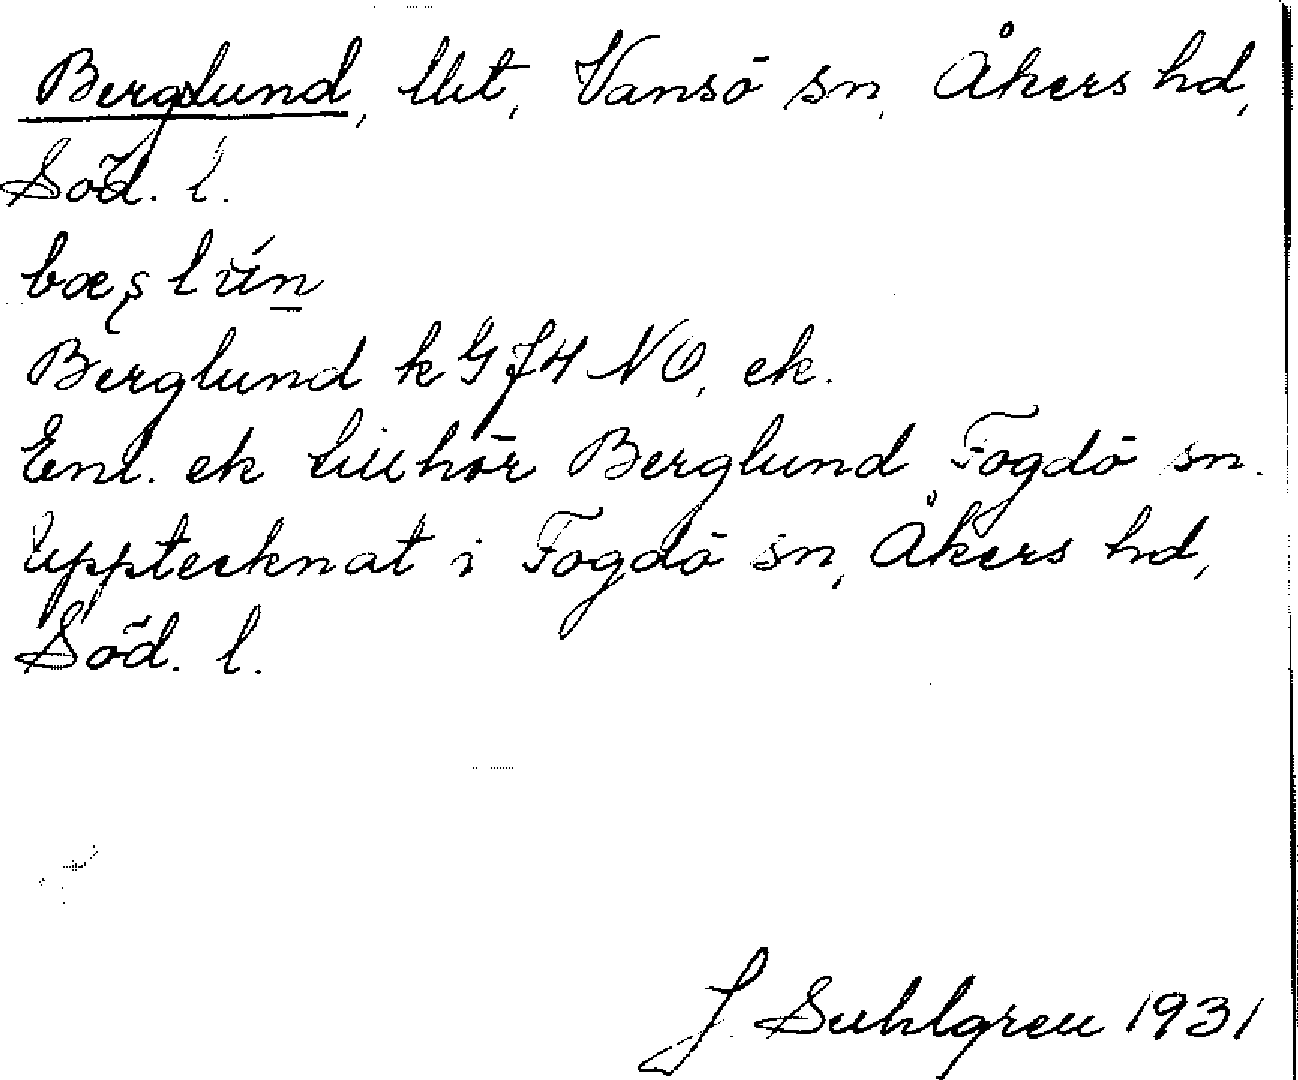 Berglund, llht, Vansö sn, Åkers hd,
Söd. l.
Berglund k G J4 NO, ek.
Enl. ek tillhör Berglund Fogdö sn.
Upptecknat i Fogdö sn, Åkers hd,
Söd. l.
J Sahlgren 1931